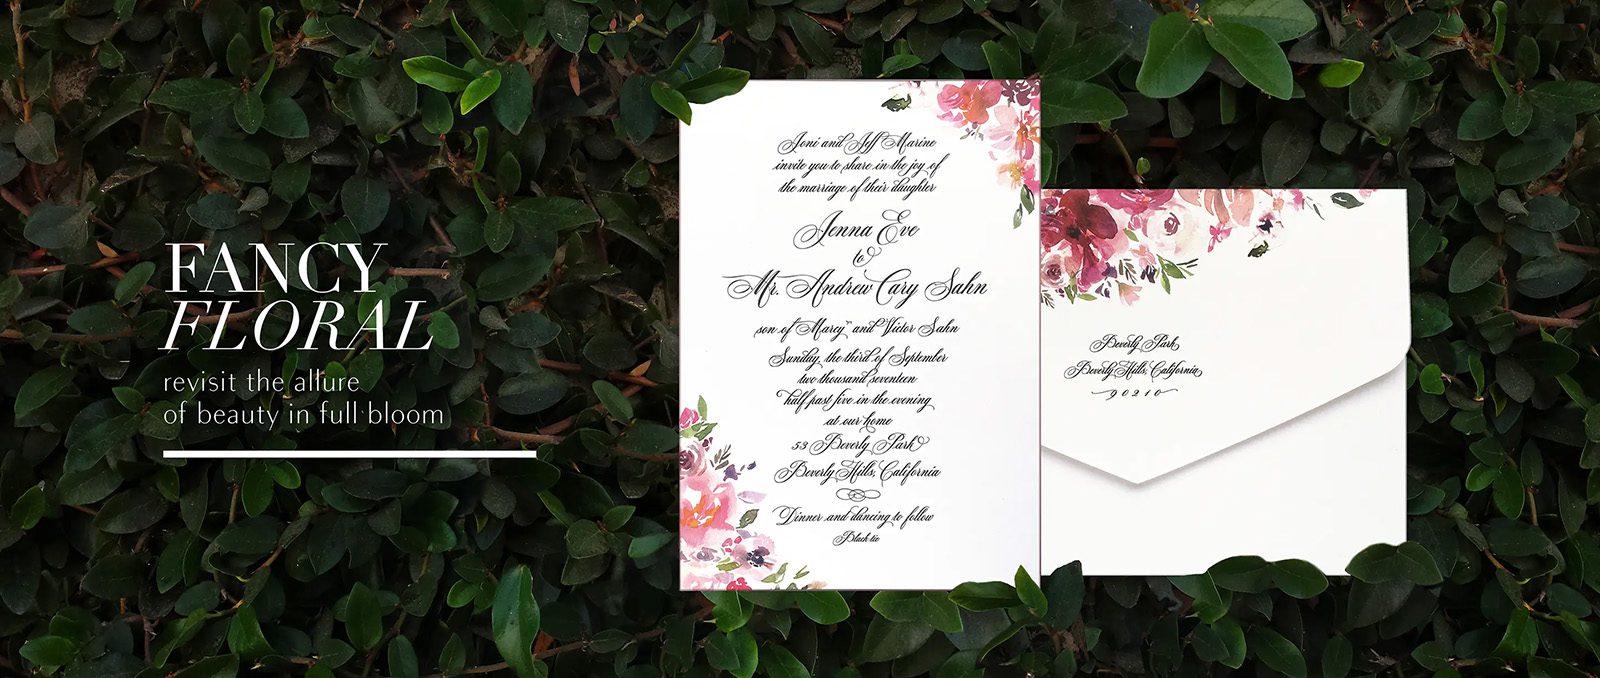 FANCY
FLORAL
revisit the allure
of beauty in full bloom
Joni and Jeff Marine
invite you to share in the joy of
the marriage of their daughter
Jenna Eve
to
Mr. Andrew Cary Sahn
son of Marcy and Victor Sahn
Sunday, the third of September
two thousand seventeen
half past five in the evening
at our home
53 Beverly Park
Beverly Hills, California
Dinner and dancing to follow
Black tie
Beverly Park
Beverly Hills, California
90210